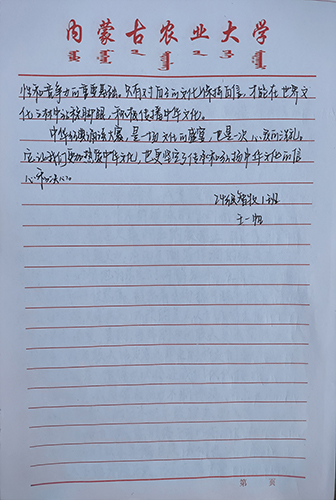 内蒙古农业大学
性和竞争力的重要基础。只有对自己的文化保持自信，才能在世界文
化之林中站稳脚跟，积极传播中华文化。
中华经典诵读大赛，是一场文化的盛宴，也是一次心灵的洗礼。
它让我们更加热爱中华文化，也更坚定了传承和弘扬中华文化的信
心和决心。
智牧1班
王一
第 页